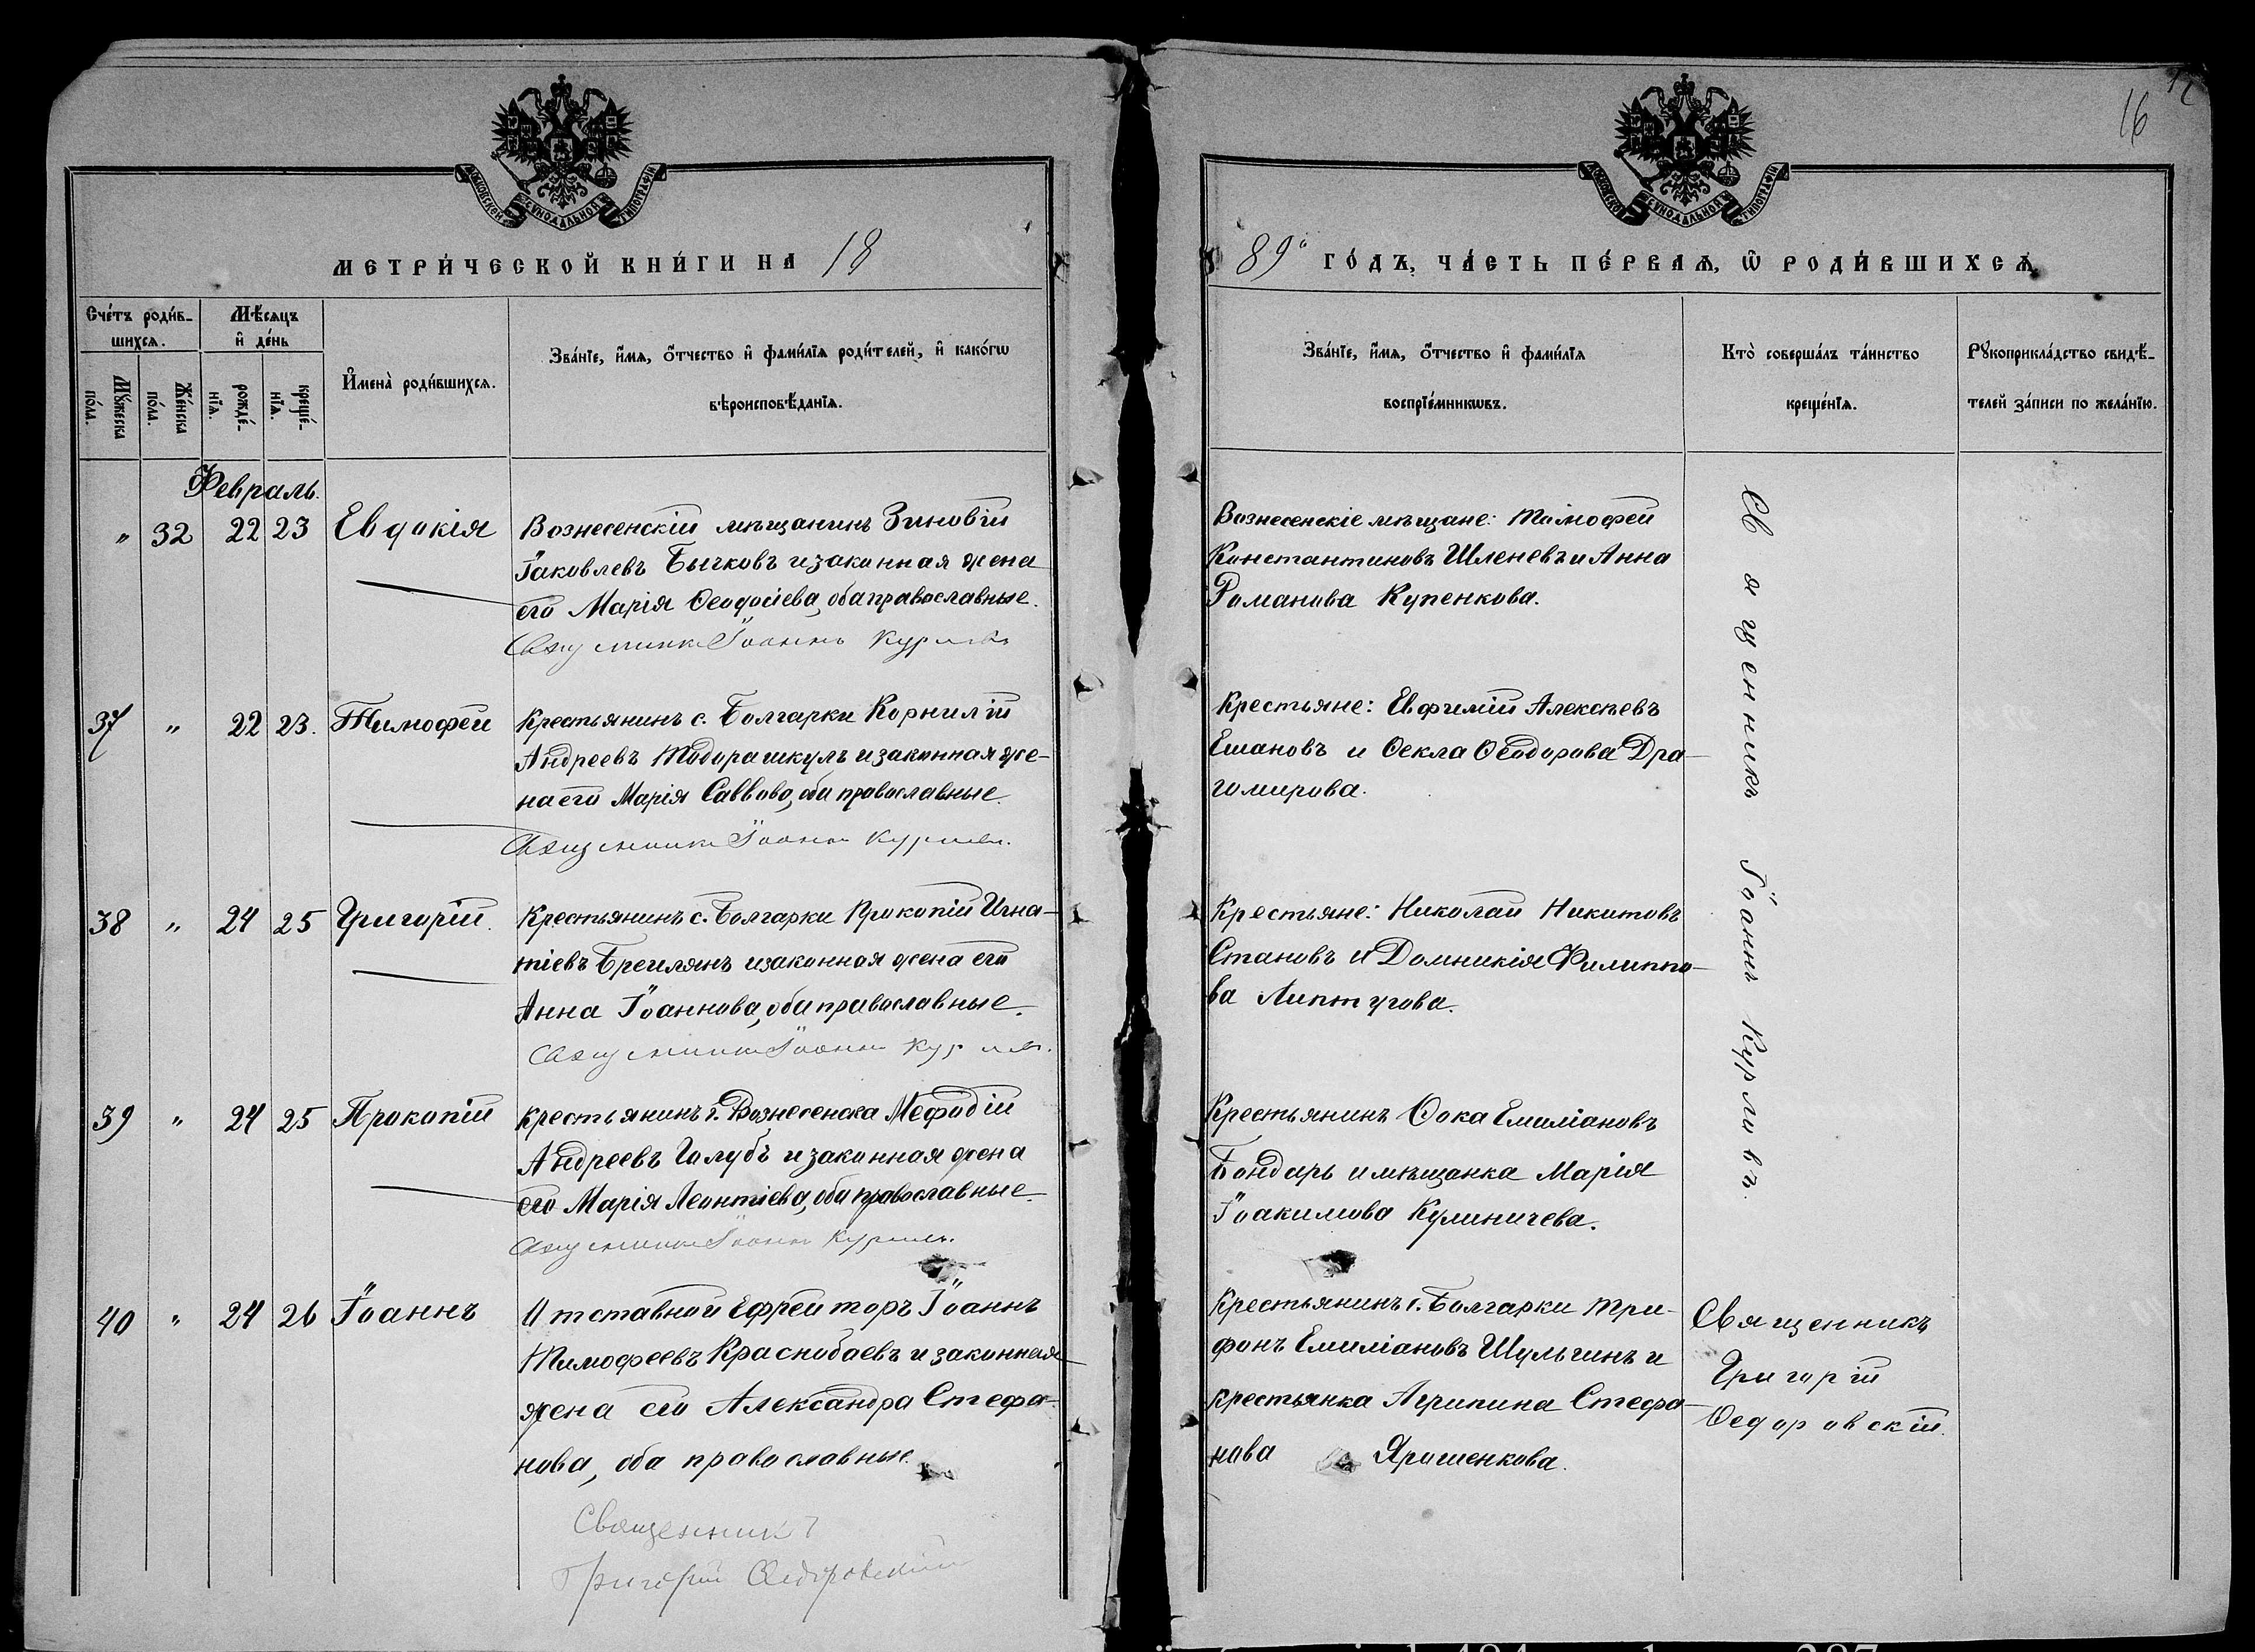 16
МОСКОВСКОЙ СѴНОДАЛЬНОЙ ТИПОГРАФІИ
МОСКОВСКОЙ СѴНОДАЛЬНОЙ ТИПОГРАФІИ
МЕТРИ́ЧЕСКОЙ КНИ́ГИ НА 18
89 го ГО́ДЪ, ЧА́СТЬ ПЕ́РВАѦ, Ѡ҆ РОДИ́ВШИХСѦ
Сче́тъ роди́в-
шихсѧ.
Мѣ́сѧцъ
и҆ де́нь
Мꙋ́жеска
по́ла.
Же́нска
по́ла.
рожде́-
нїѧ.
креще́-
нїѧ.
И҆мена̀ роди́вшихсѧ.
Зва́нїе, и҆́мѧ, ѻ҆́тчество и҆ фами́лїѧ роди́телей, и҆ како́гѡ
вѣроисповѣ́данїѧ.
Зва́нїе, и҆́мѧ, ѻ҆́тчество и҆ фами́лїѧ
воспрїе́мникѡвъ.
Кто̀ соверша́лъ та́инство
креще́нїѧ.
Рꙋкоприкла́дство свидѣ́-
телей за́писи по жела́нїю.
Февраль.
" 32 22 23 Евдокія
Вознесенскій мѣщанинъ Зиновій
Іаковлевъ Бычковъ и законная жена
его Марія Ѳеодосіева, оба православные.
Священникъ Іоаннъ Курловъ
Вознесенскіе мѣщане: Тимофей
Константиновъ Шленевъ и Анна
Романова Купенкова.
37 " 22 23. Тимофей
Крестьянинъ с. Болгарки Корнилій
Андреевъ Тодорашкулъ и законная же-
на его Марія Саввова, оба православные.
Священникъ Іоаннъ Курловъ.
Крестьяне: Евфимій Алексѣевъ
Ешановъ и Ѳекла Ѳеодорова Дра-
гомирова.
38 " 24 25 Григорій.
Крестьянинъ с. Болгарки Прокопій Игна-
тіевъ Бреилянъ и законная жена его
Анна Іоаннова, оба православные.
Священникъ Іоаннъ Курловъ.
Крестьяне: Николай Никитовъ
Становъ и Домникія Филиппо-
ва Липтугова.
39 " 24 25 Прокопій
Крестьянинъ г. Вознесенска Мефодій
Андреевъ Голубъ и законная жена
его Марія Леонтіева, оба православные.
Священникъ Іоаннъ Курловъ.
Крестьянинъ Ѳока Емиліановъ
Бондарь и мѣщанка Марія
Іоакимова Кулиничева.
Священникъ Іоаннъ Курловъ.
40 " 24 26 Іоаннъ
Отставной Ефрейторъ Іоаннъ
Тимофеевъ Краснобаевъ и законная
жена его Александра Стефа-
нова, оба православные.
Священникъ
Григорій Ѳедоровскій
Крестьянинъ с. Болгарки Три-
фонъ Емиліановъ Шульгинъ и
крестьянка Агрипина Стефа-
нова Ярошенкова.
Священникъ
Григорій
Ѳедоровскій.